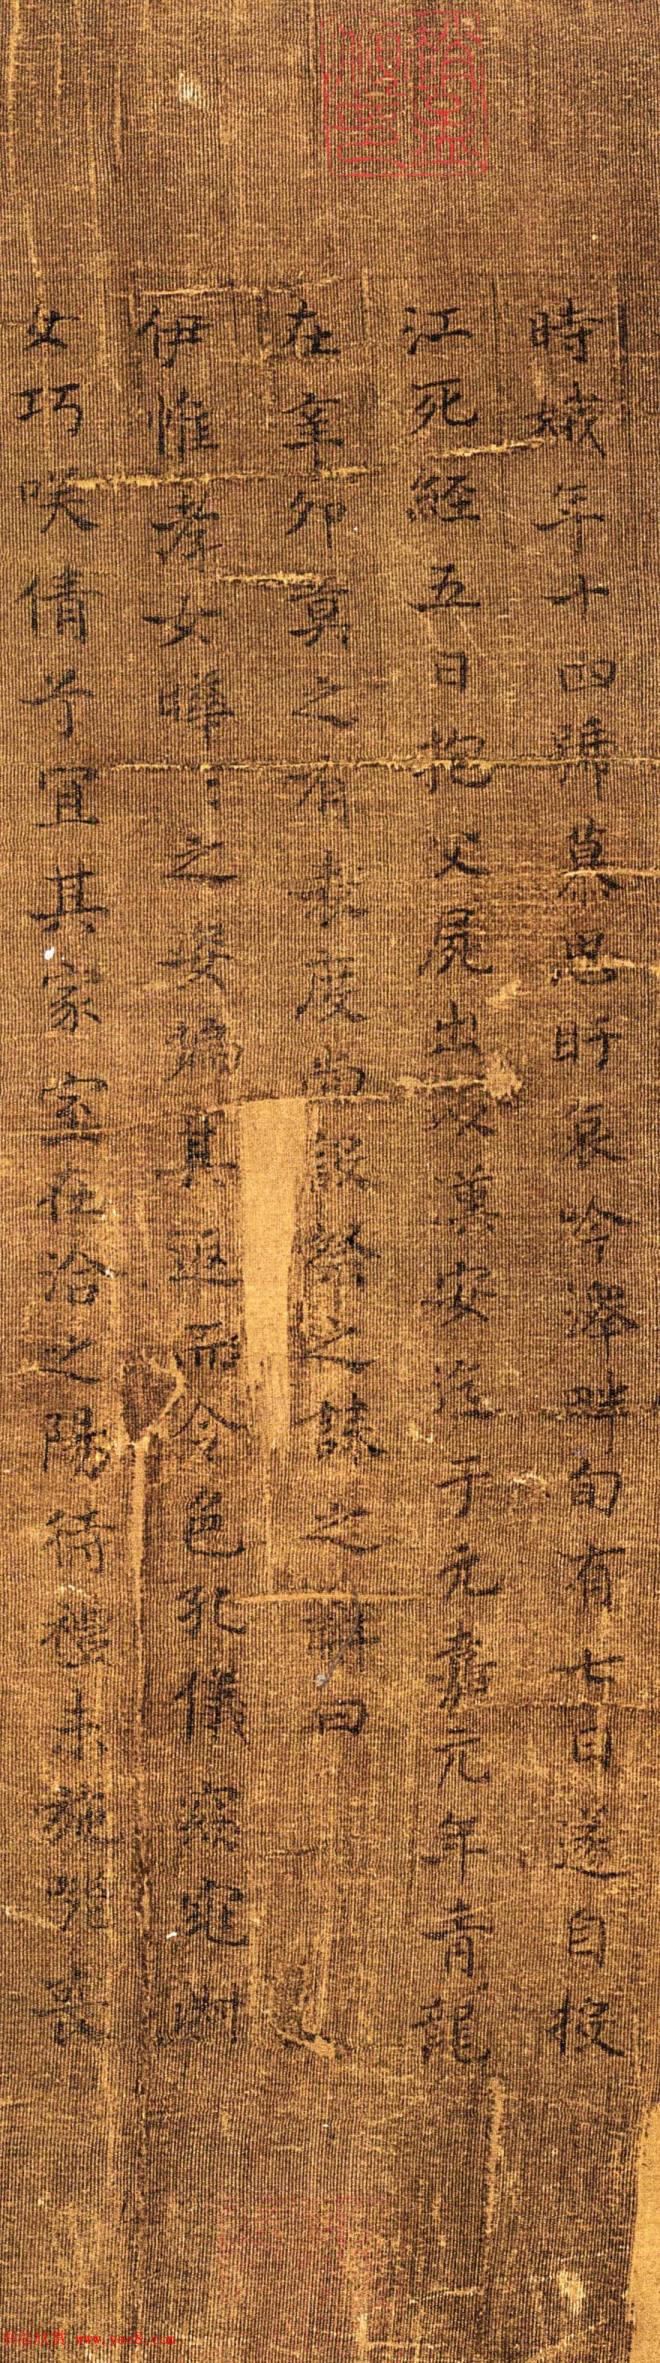 時娥年十四號慕思盱哀吟澤畔旬有七日遂自投
江死經五日抱父屍出以漢安迄于元嘉元年青龍
在辛卯莫之有表度尚設祭之誄之辭曰
伊惟孝女曄〻之姿偏其返而令色孔儀窈窕淑
女巧咲倩兮宜其家室在洽之陽待禮未施嗟喪
www.yac8.com